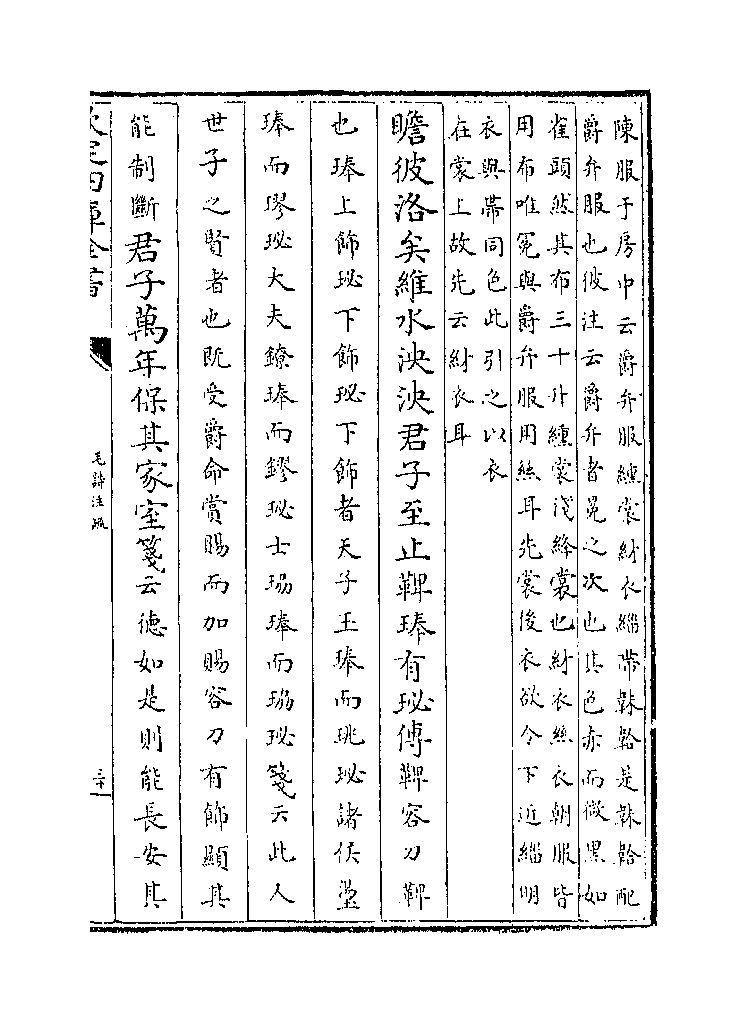 陳服于房中云爵弁服纁裳紂衣緇帶韎韐是韎韐配
爵弁服也彼注云爵弁者冕之次也其色赤而微黑如
雀頭然其布三十升纁裳淺絳裳也紂衣絲衣朝服皆
用布唯冕與爵弁服用絲耳先裳後衣欲令下近緇明
衣與帶同色此引之以衣
在裳上故先云紂衣耳
瞻彼洛矣維水泱泱君子至止鞞琫有珌傳鞞容刀鞞
也琫上飾珌下飾珌下飾者天子玉琫而珧珌諸侯璗
琫而璆珌大夫鐐琫而鏐珌士珕琫而珕珌箋云此人
世子之賢者也既受爵命賞賜而加賜容刀有飾顯其
能制斷君子萬年保其家室箋云德如是則能長安其
欽定四庫全書
毛詩注疏
三十